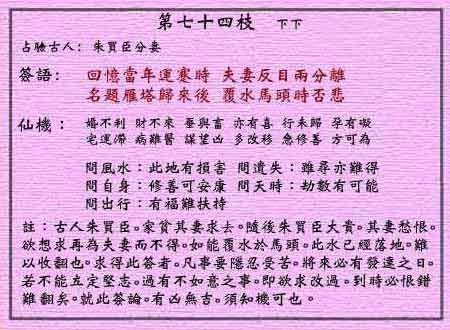 第七十四枝　下下
占驗古人：朱買臣分妻
簽語： 回憶當年運蹇時 夫妻反目兩分離
名題雁塔歸來後 覆水馬頭時否悲
仙機： 婚不利 財不來 蚕與畜 亦有喜 行未歸 孕有礙
宅運滯 病難醫 謀望凶 多改移 急修善 方可為
問風水：此地有損害 問遺失：雖尋亦難得
問自身：修善可安康 問天時：劫數有可能
問出行：有福難扶持
註：古人朱買臣。家貧其妻求去。隨後朱買臣大貴。其妻愁恨。
欲想求再為夫妻而不得。如能覆水於馬頭。此水已經落地。難
以收翻也。求得此簽者。凡事要隱忍受苦。將來必有發達之日。
若不能立定堅志。過有不如意之事。即欲求改過。到時必恨錯
難翻矣。就此簽論。有凶無吉。須知機可也。